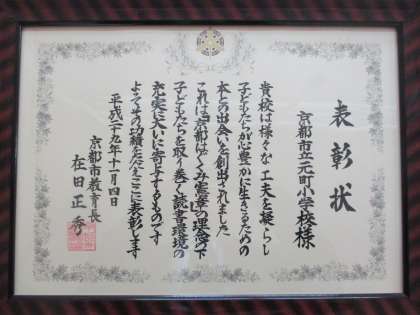 表彰状
京都市立元町小学校様
貴校は様々な工夫を凝らし
子どもたちが心豊かに生きるための
本との出会いを創出されました
これは「京都はぐくみ憲章」の理念の下
子どもたちを取り巻く読書環境の
充実に大いに寄与するものです
よってその功績をたたえここに表彰します
平成二十九年十一月四日
京都市教育長
在田正秀